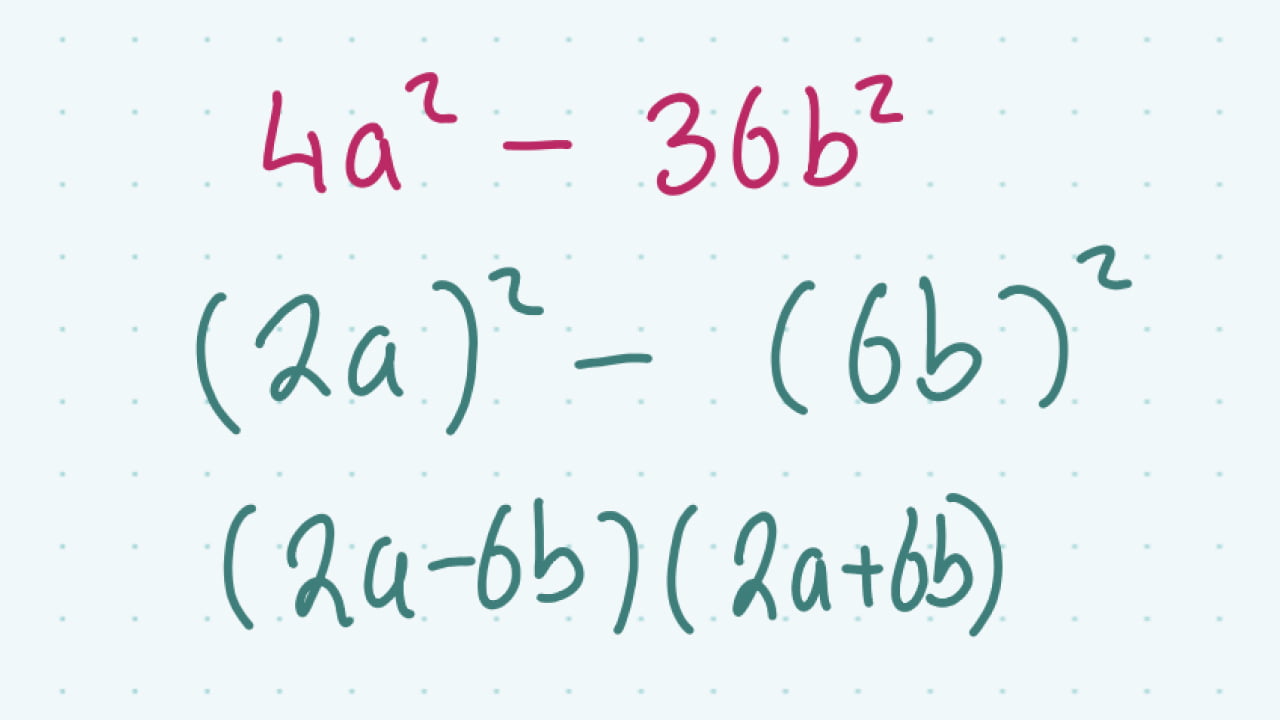 4a² - 36b²
(2a)² - (6b)²
(2a-6b)(2a+6b)